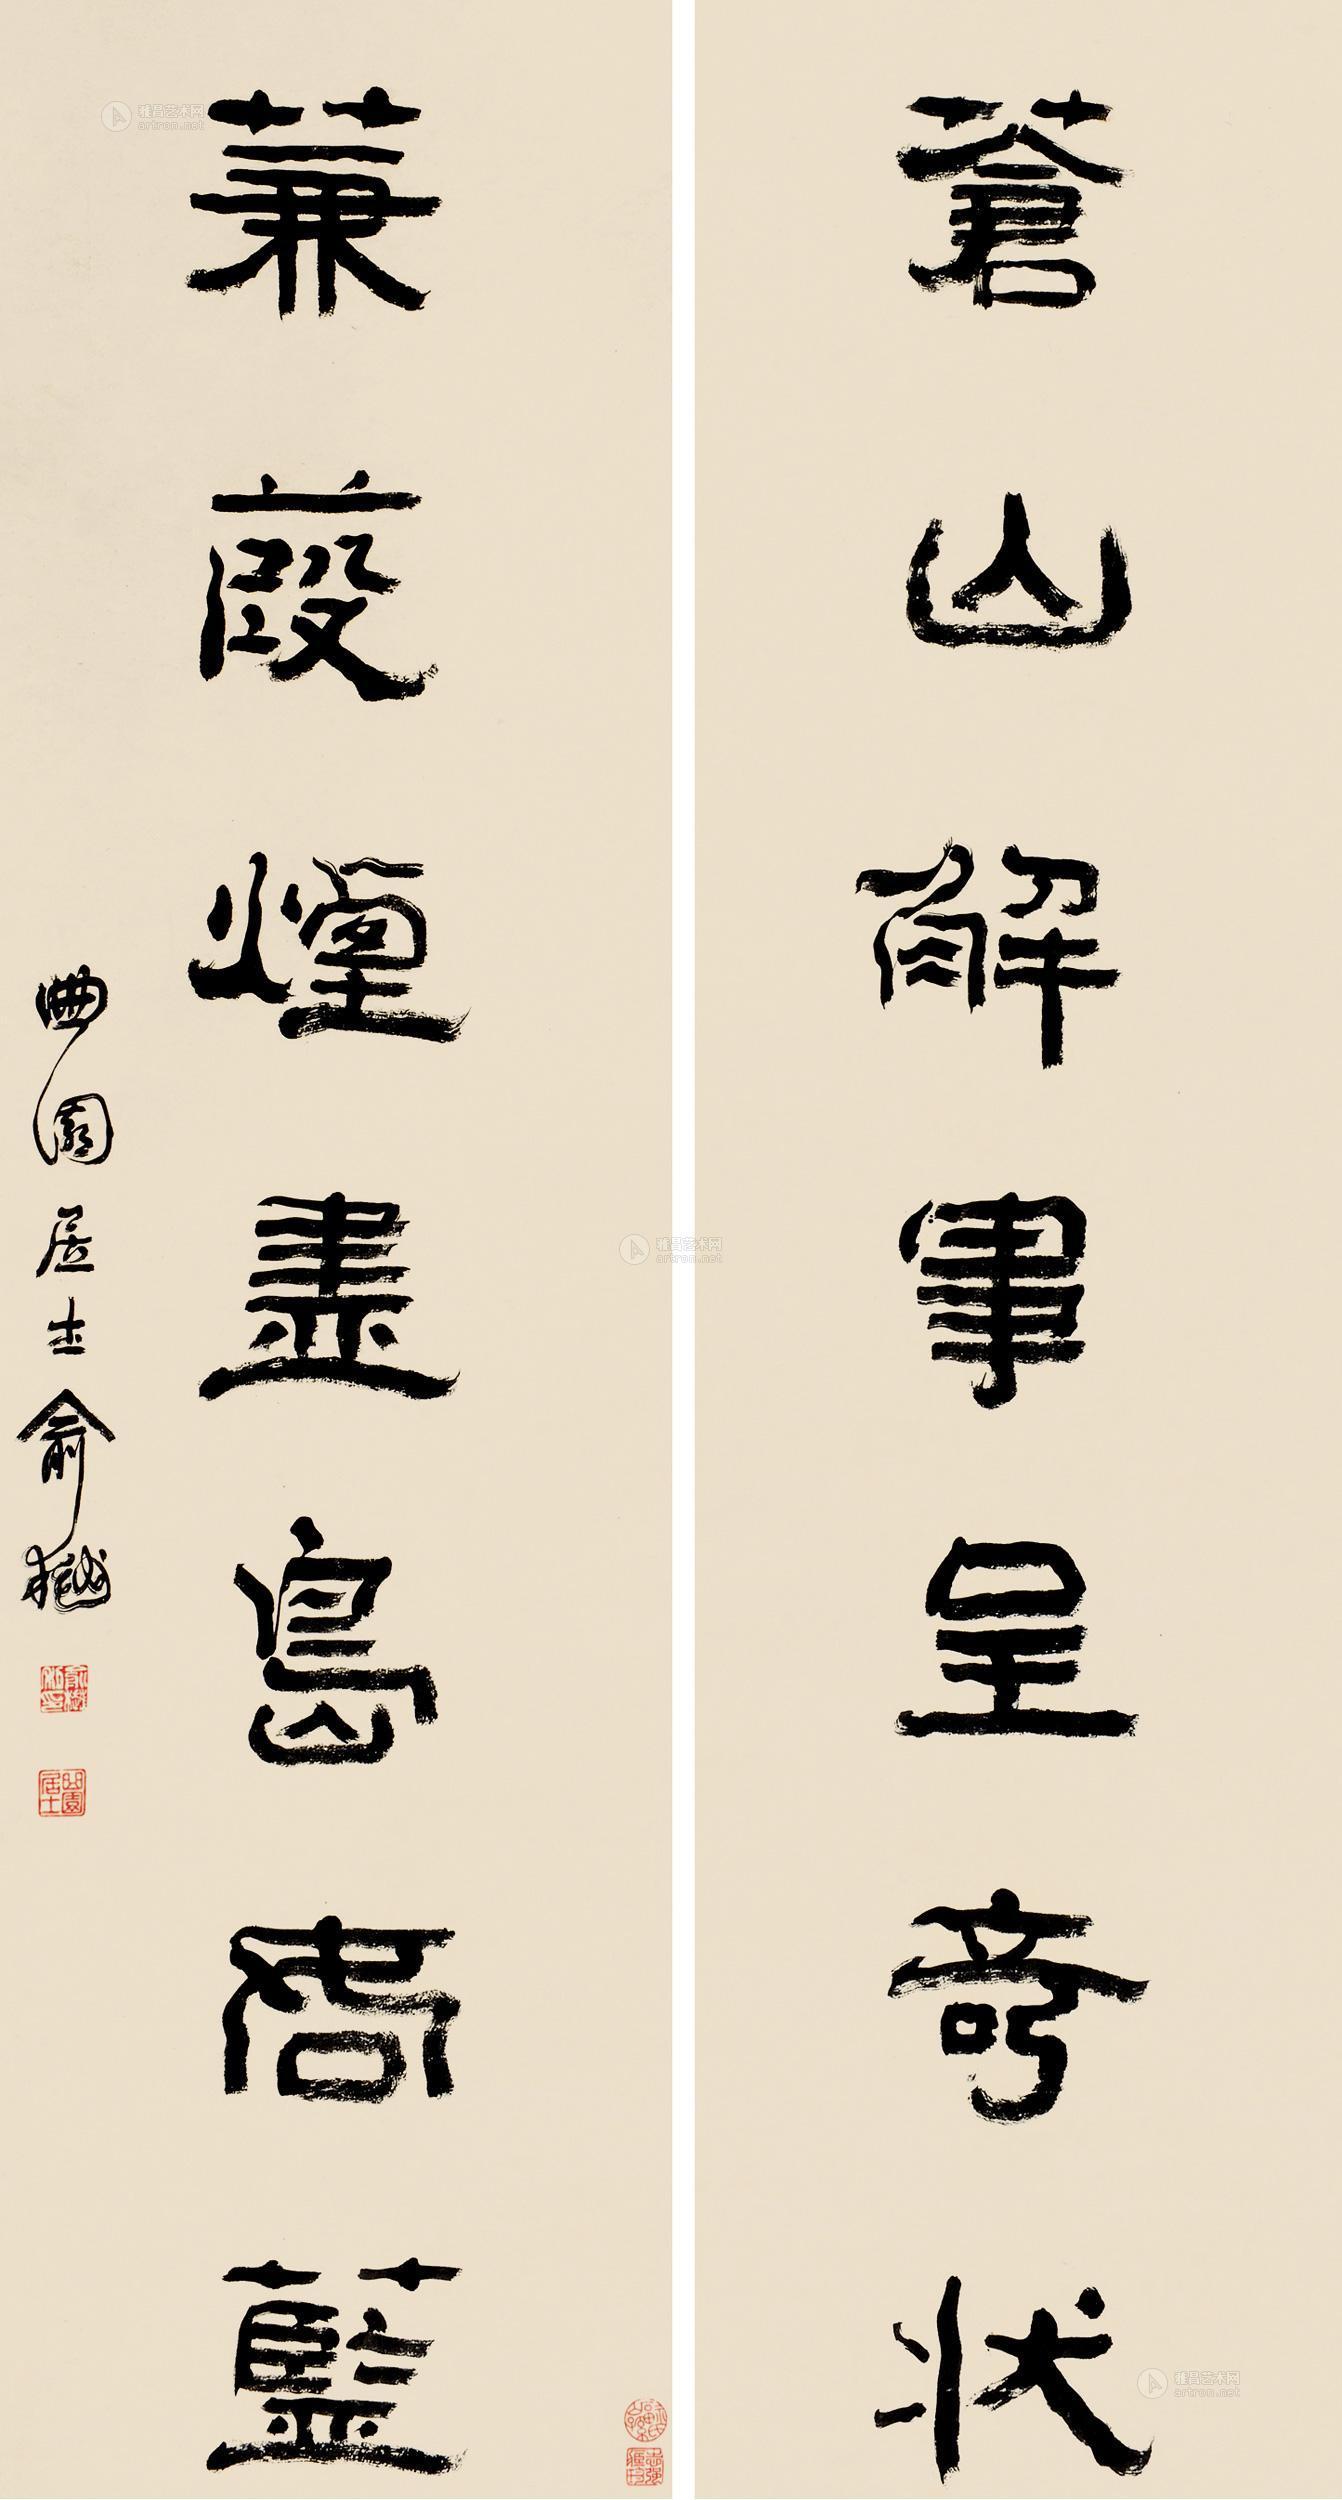 蒼山解事呈奇狀
蒹葭煙盡島藍
曲園居士俞樾
曲園居士
雅昌艺术网
artron.net
雅昌艺术网
artron.net
雅昌艺术网
artron.net